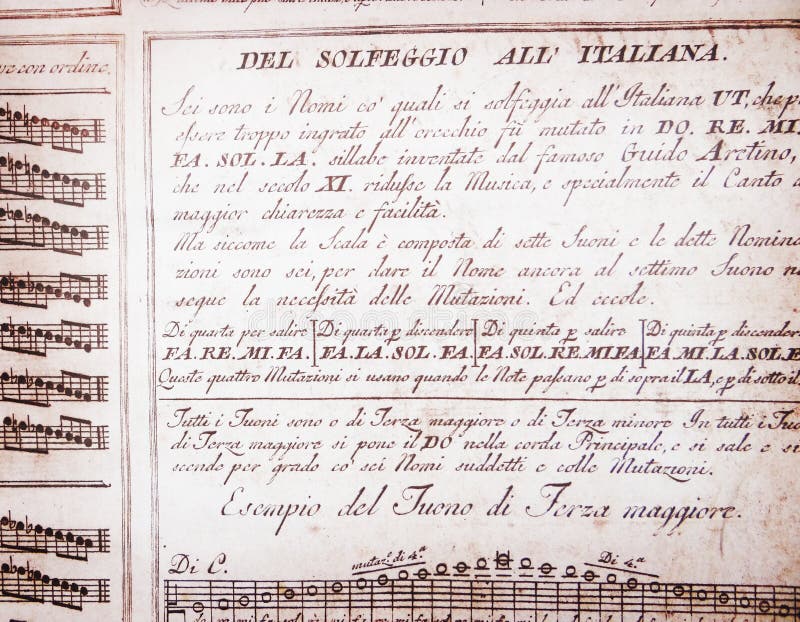 ve con ordine.
DEL SOLFEGGIO ALL' ITALIANA.
Sei sono i Nomi co' quali si solfeggia all' Italiana UT, che p.
essere troppo ingrato all' orecchio fù mutato in DO. RE. MI.
FA. SOL. LA. sillabe inventate dal famoso Guido Aretino,
che nel secolo XI. ridusse la Musica, e specialmente il Canto a
maggior chiarezza e facilità.
Ma siccome la Scala è composta di sette Suoni e le dette Nomina
zioni sono sei, per dare il Nome ancora al settimo Suono n
segue la necessità delle Mutazioni. Ed eccole.
Di quarta per salire
FA. RE. MI. FA.
Di quarta p discendere
FA. LA. SOL. FA.
Di quinta p salire
FA. SOL. RE. MI FA.
Di quinta p discendere
FA. MI. LA. SOL. F
Queste quattro Mutazioni si usano quando le Note passano p di sopra il LA, e p di sotto il
Tutti i Tuoni sono o di Terza maggiore o di Terza minore In tutti i Tuo
di Terza maggiore si pone il DO nella corda Principale, e si sale e si
scende per grado co' sei Nomi suddetti e colle Mutazioni.
Esempio del Tuono di Terza maggiore.
Di C.
mutaz. di 4.a
Di 4.a